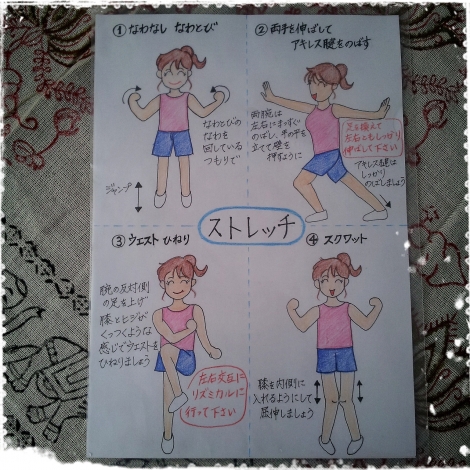 ① なわなし なわとび
なわとびの
なわを
回している
つもりで
ジャンプ
② 両手を伸ばして
アキレス腱をのばす
両腕は
左右にまっすぐ
のばし、手の平を
立てて壁を
押すように
足を換えて
左右ともしっかり
伸ばして下さい
アキレス腱は
しっかり
のばしましょう
ストレッチ
③ ウエスト ひねり
腕の反対側
の足を上げ
膝とヒジが
くっつくような
感じでウエストを
ひねりましょう
左右交互に
リズミカルに
行って下さい
④ スクワット
膝を内側に
入れるようにして
屈伸しましょう